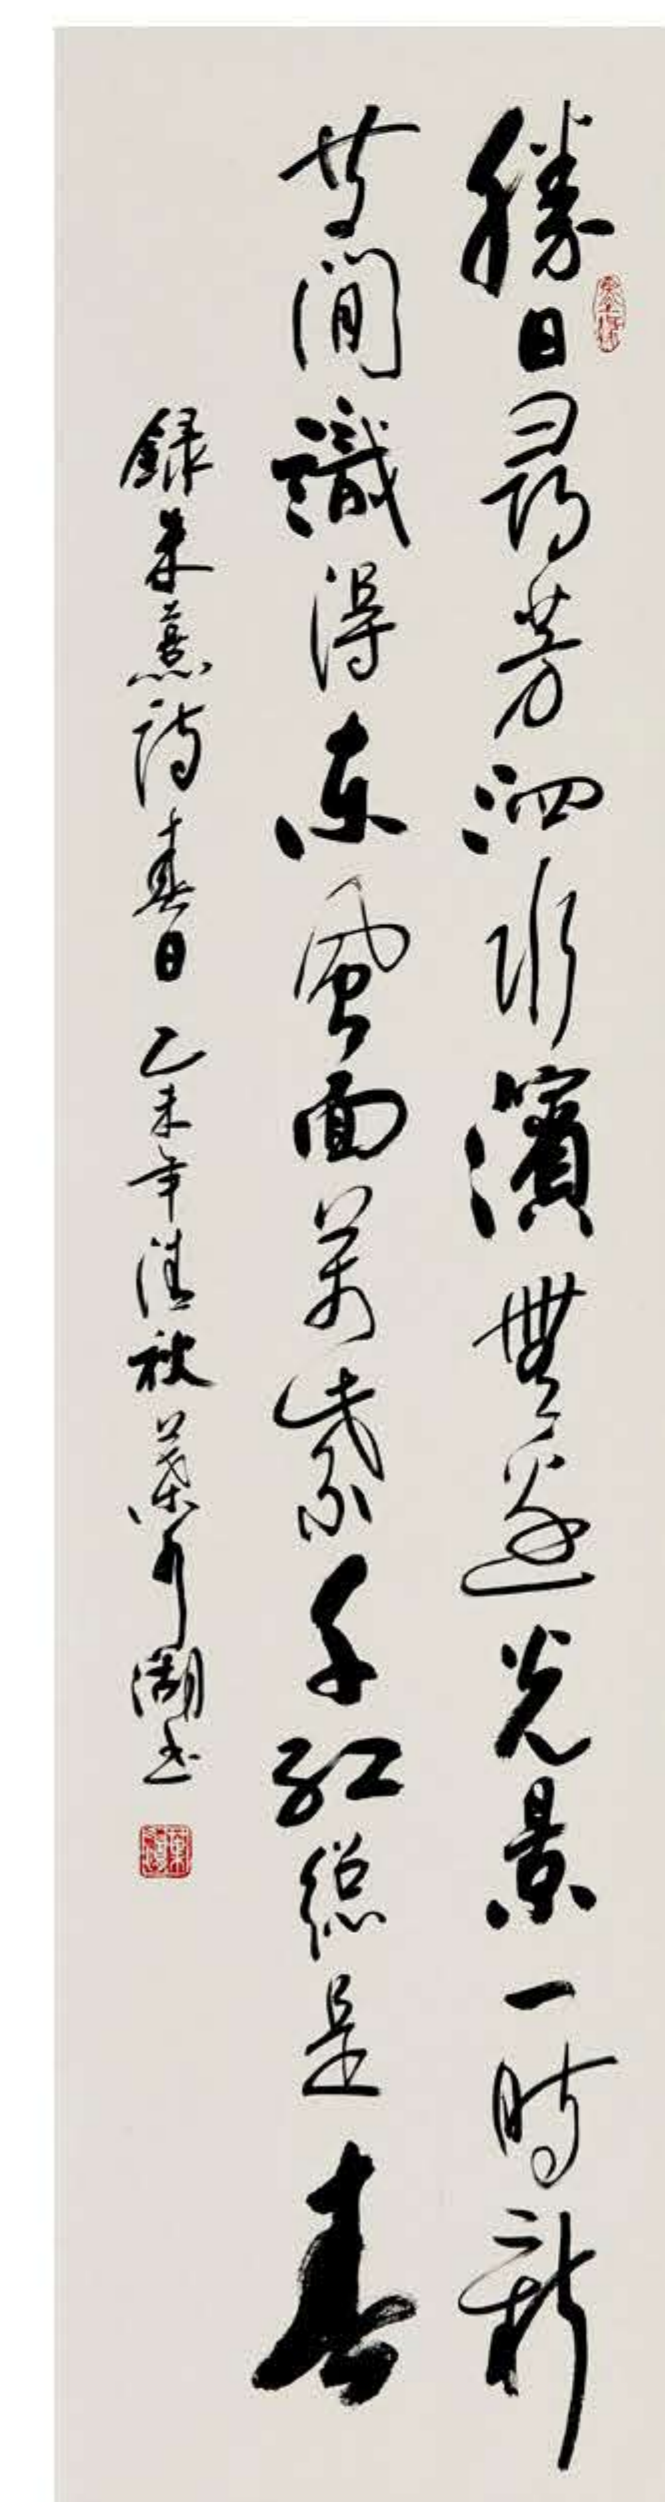 勝日尋芳泗水濱無邊光景一時新
等閒識得東風面萬紫千紅總是春
録朱熹詩春日 乙未年清秋 葉湖書